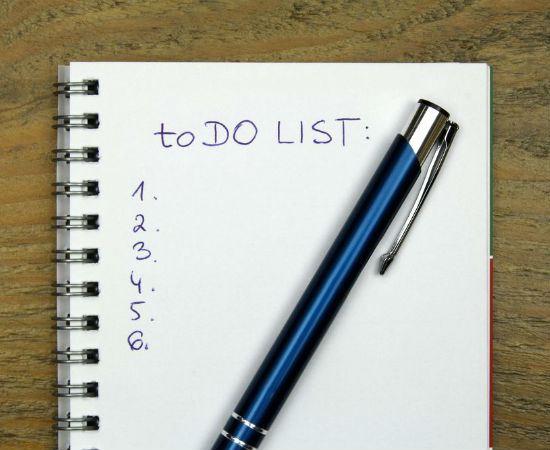 to DO LIST:
1.
2.
3.
4.
5.
6.